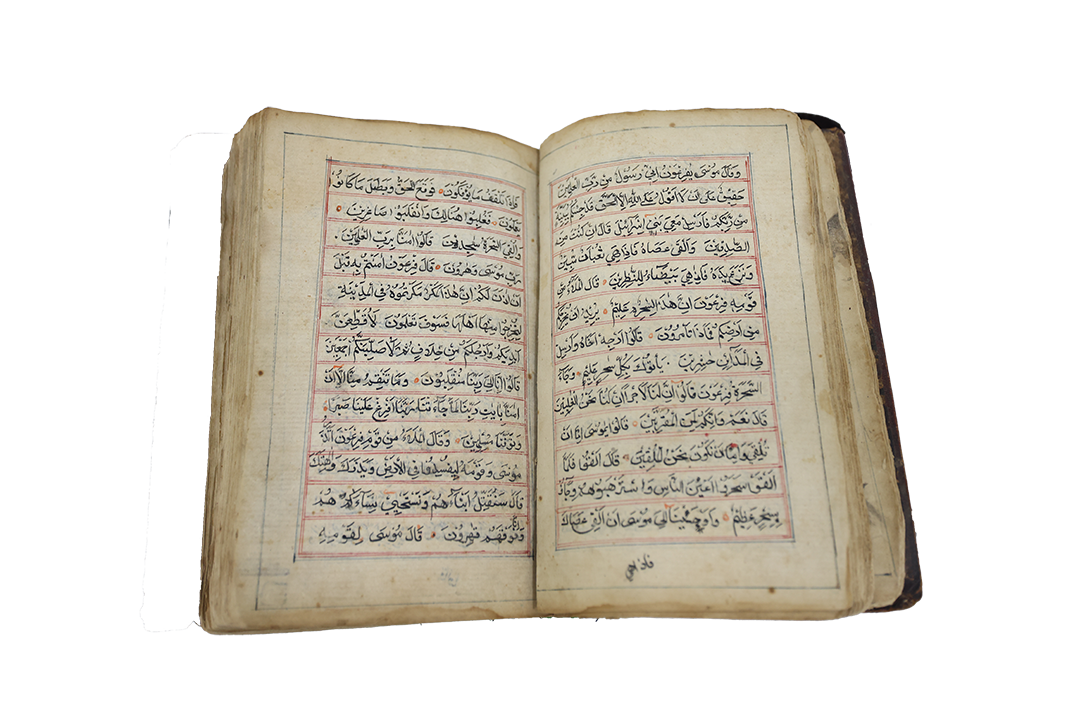 وَقَالَ مُوسَى يٰفِرْعَوْنُ اِنِّي رَسُولٌ مِنْ رَبِّ الْعٰلَمِينَ
حَقِيقٌ عَلَى اَنْ لَا اَقُولَ عَلَى اللّٰهِ اِلَّا الْحَقَّ قَدْ جِئْتُكُمْ بِبَيِّنَةٍ
مِنْ رَبِّكُمْ فَاَرْسِلْ مَعِيَ بَنِي اِسْرَائِيلَ قَالَ اِنْ كُنْتَ مِنَ
الصّٰدِقِينَ وَاَلْقَى عَصَاهُ فَاِذَا هِيَ ثُعْبَانٌ مُبِينٌ
وَنَزَعَ يَدَهُ فَاِذَا هِيَ بَيْضَاءُ لِلنّٰظِرِينَ قَالَ الْمَلَاُ مِنْ
قَوْمِ فِرْعَوْنَ اِنَّ هٰذَا لَسٰحِرٌ عَلِيمٌ يُرِيدُ اَنْ يُخْرِجَكُمْ
مِنْ اَرْضِكُمْ فَمَاذَا تَأْمُرُونَ قَالُوا اَرْجِهْ وَاَخَاهُ وَاَرْسِلْ
فِي الْمَدَائِنِ حٰشِرِينَ يَأْتُوكَ بِكُلِّ سٰحِرٍ عَلِيمٍ وَجَاءَ
السَّحَرَةُ فِرْعَوْنَ قَالُوا اِنَّ لَنَا لَاَجْرًا اِنْ كُنَّا نَحْنُ الْغٰلِبِينَ
قَالَ نَعَمْ وَاِنَّكُمْ لَمِنَ الْمُقَرَّبِينَ قَالُوا يٰمُوسَى اِمَّا اَنْ
تُلْقِيَ وَاِمَّا اَنْ نَكُونَ نَحْنُ الْمُلْقِينَ قَالَ اَلْقُوا فَلَمَّا
اَلْقَوْا سَحَرُوا اَعْيُنَ النَّاسِ وَاسْتَرْهَبُوهُمْ وَجَاؤُ
بِسِحْرٍ عَظِيمٍ وَاَوْحَيْنَا اِلَى مُوسَى اَنْ اَلْقِ عَصَاكَ
فاذا هي
فَاِذَا تَلْقَفُ مَا يَأْفِكُونَ فَوَقَعَ الْحَقُّ وَبَطَلَ مَا كَانُوا
يَعْمَلُونَ فَغُلِبُوا هُنَالِكَ وَانْقَلَبُوا صَاغِرِينَ
وَاُلْقِيَ السَّحَرَةُ سٰجِدِينَ قَالُوا اٰمَنَّا بِرَبِّ الْعٰلَمِينَ
رَبِّ مُوسَى وَهٰرُونَ قَالَ فِرْعَوْنُ اٰمَنْتُمْ بِهِ قَبْلَ
اَنْ اٰذَنَ لَكُمْ اِنَّ هٰذَا لَمَكْرٌ مَكَرْتُمُوهُ فِي الْمَدِينَةِ
لِتُخْرِجُوا مِنْهَا اَهْلَهَا فَسَوْفَ تَعْلَمُونَ لَاُقَطِّعَنَّ
اَيْدِيَكُمْ وَاَرْجُلَكُمْ مِنْ خِلَافٍ ثُمَّ لَاُصَلِّبَنَّكُمْ اَجْمَعِينَ
قَالُوا اِنَّا اِلَى رَبِّنَا مُنْقَلِبُونَ وَمَا تَنْقِمُ مِنَّا اِلَّا اَنْ
اٰمَنَّا بِاٰيٰتِ رَبِّنَا لَمَّا جَاءَتْنَا رَبَّنَا اَفْرِغْ عَلَيْنَا صَبْرًا
وَتَوَفَّنَا مُسْلِمِينَ وَقَالَ الْمَلَاُ مِنْ قَوْمِ فِرْعَوْنَ اَتَذَرُ
مُوسَى وَقَوْمَهُ لِيُفْسِدُوا فِي الْاَرْضِ وَيَذَرَكَ وَاٰلِهَتَكَ
قَالَ سَنُقَتِّلُ اَبْنَاءَهُمْ وَنَسْتَحْيِي نِسَاءَهُمْ
وَاِنَّا فَوْقَهُمْ قٰهِرُونَ قَالَ مُوسَى لِقَوْمِهِ